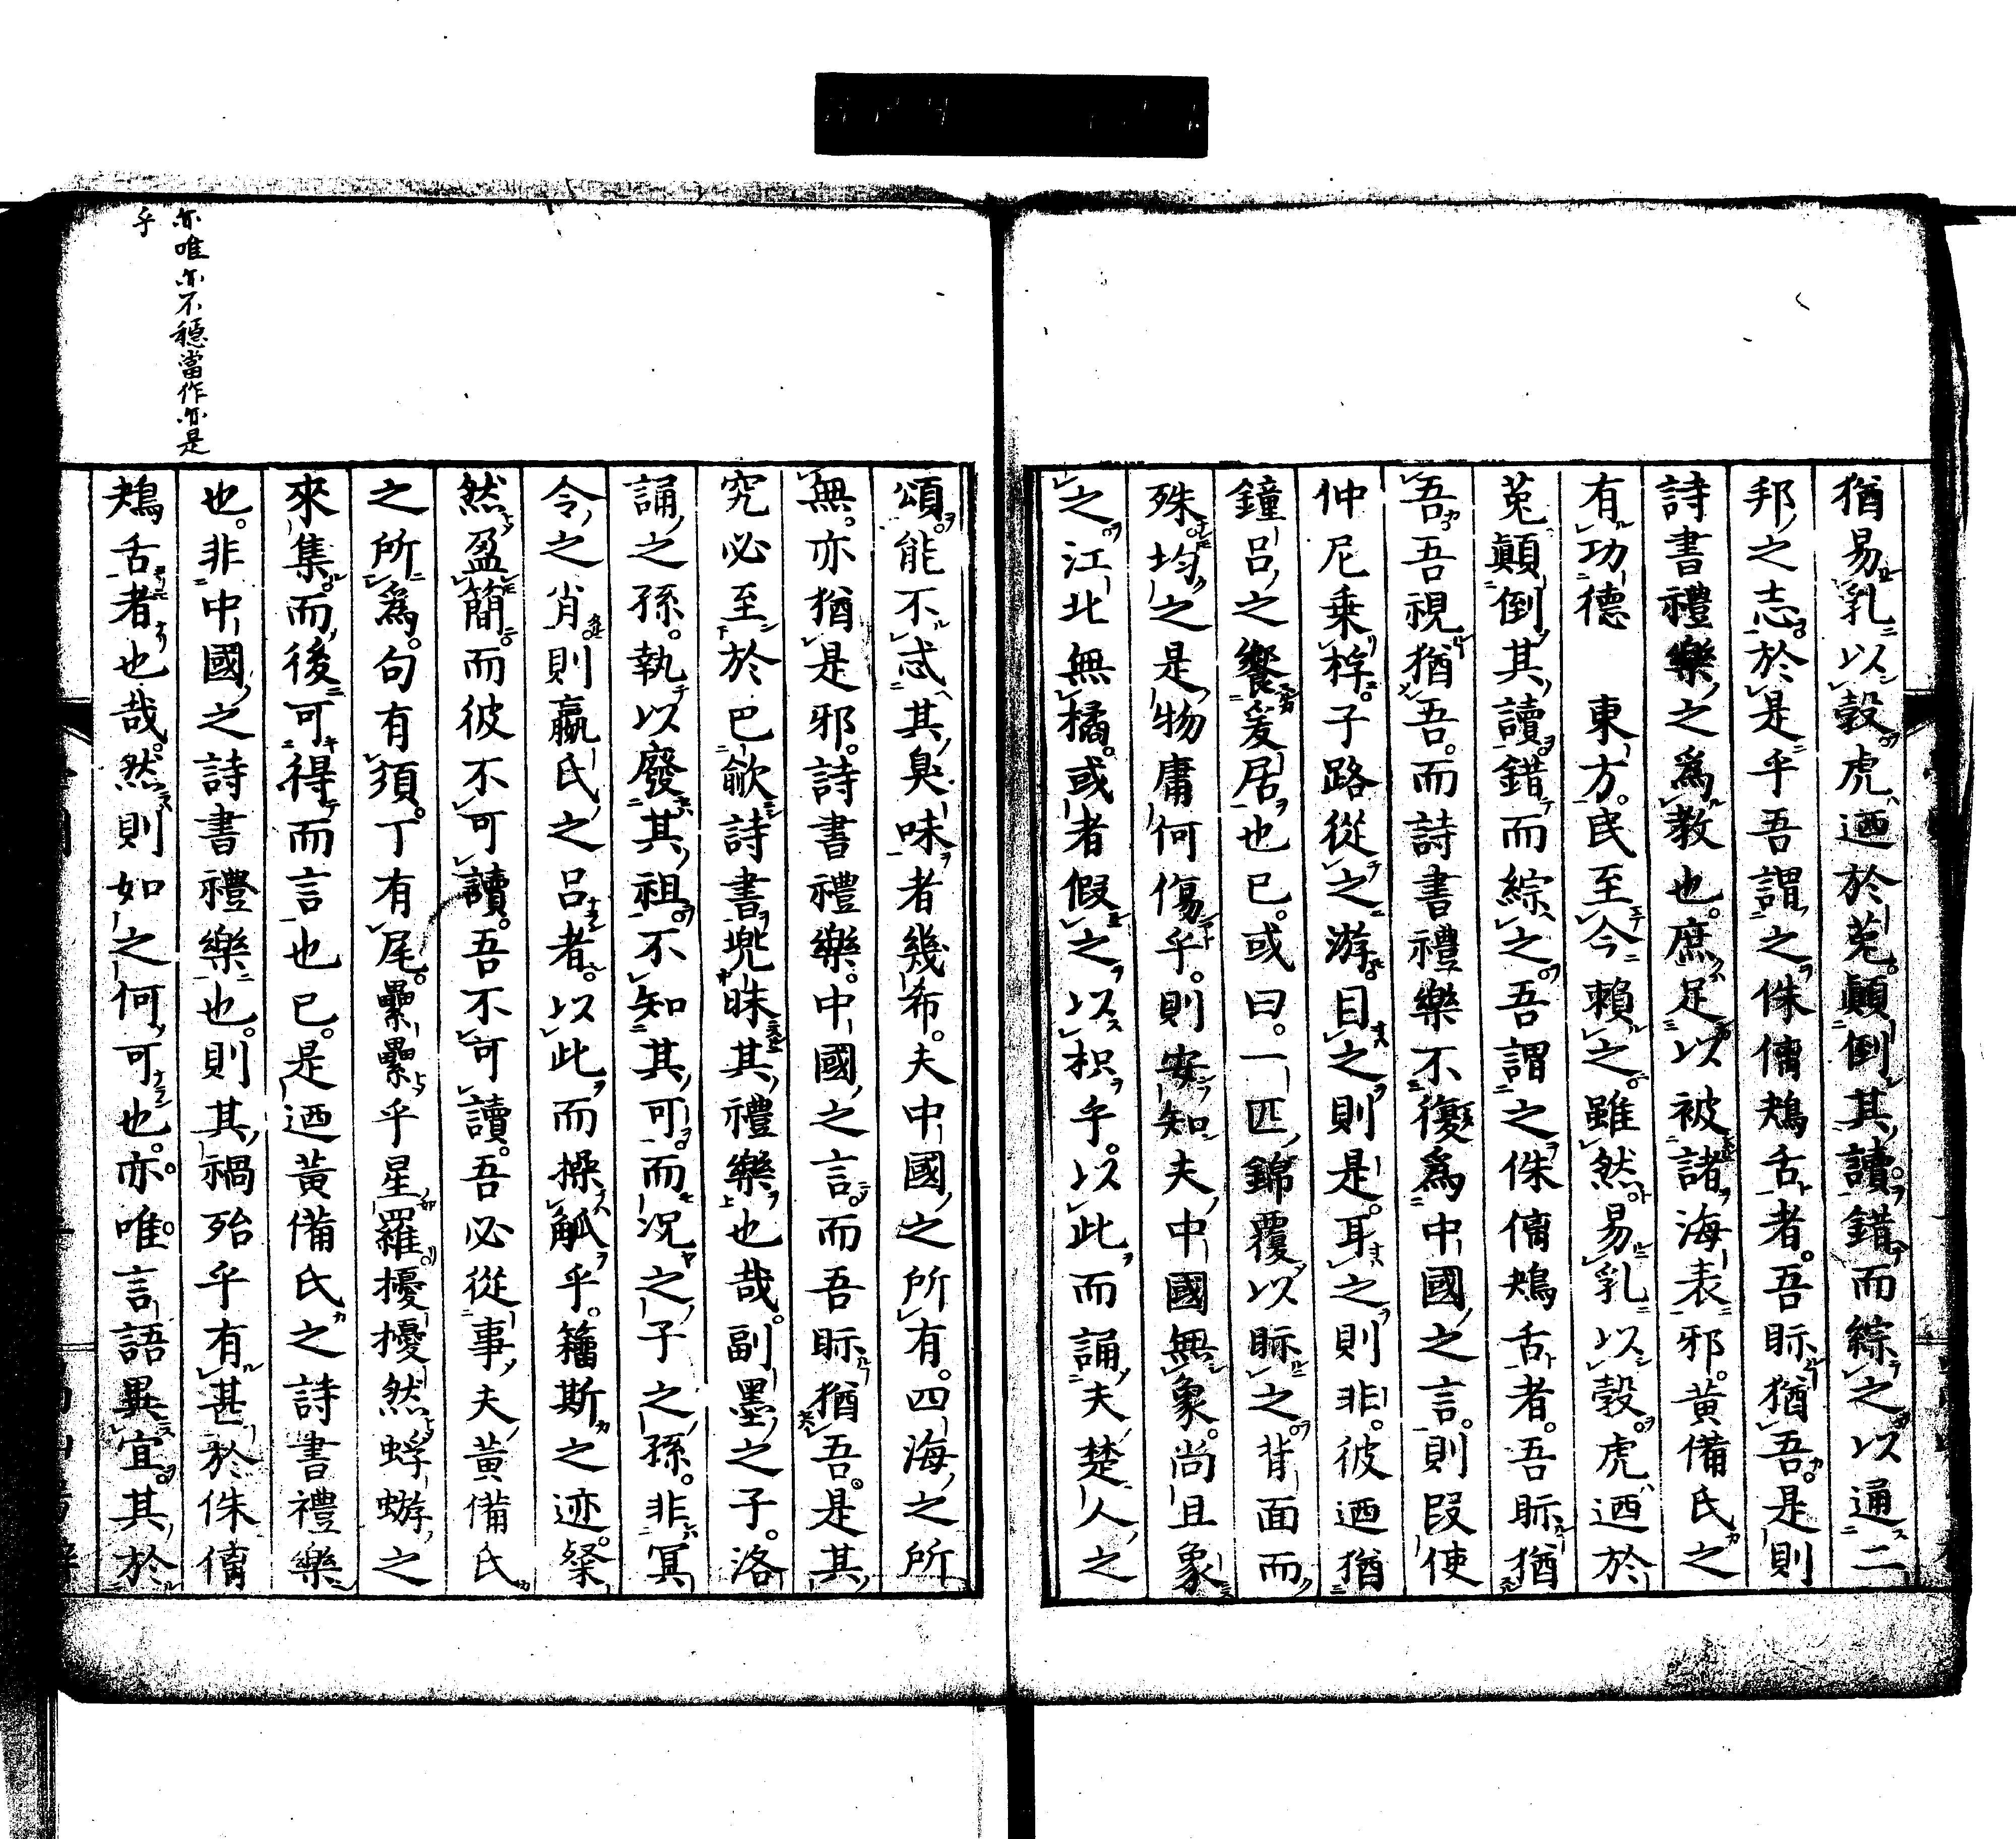 猶易乳以穀虎迺於菟顛倒其讀錯而綜之以通二
邦之志於是乎吾謂之侏𠌯鴂舌者吾眎猶吾是則
詩書禮樂之爲教也庶足以被諸海表邪黃備氏之
有功德 東方民至今賴之雖然易乳以穀虎迺於
菟顛倒其讀錯而綜之吾謂之侏𠌯鴂舌者吾眎猶
吾吾視猶吾而詩書禮樂不復爲中國之言則叚使
仲尼乗桴子路從之游目之則是耳之則非彼迺猶
鐘呂之饗爰居也已或曰一匹錦覆以眎之背面而
殊均之是物庸何傷乎則安知夫中國無象尚且象
之江北無橘或者假之以枳乎以此而誦夫楚人之
頌能不忒其臭味者幾希夫中國之所有四海之所
無亦猶是邪詩書禮樂中國之言而吾眎猶吾是其
究必至於巴歈詩書兜昧其禮樂也哉副墨之子洛
誦之孫執以廢其祖不知其可而況之子之孫非冥
令之肖則嬴氏之呂者以此而操觚乎籒斯之迹粲
然盈簡而彼不可讀吾不可讀吾必從事夫黃備氏
之所爲句有須丁有尾纍纍乎星羅擾擾然蜉蝣之
來集而後可得而言也已是迺黃備氏之詩書禮樂
也非中國之詩書禮樂也則其禍殆乎有甚於侏𠌯
鴂舌者也哉然則如之何可也亦唯言語異宜其於
亦唯亦不穩當作亦是
乎